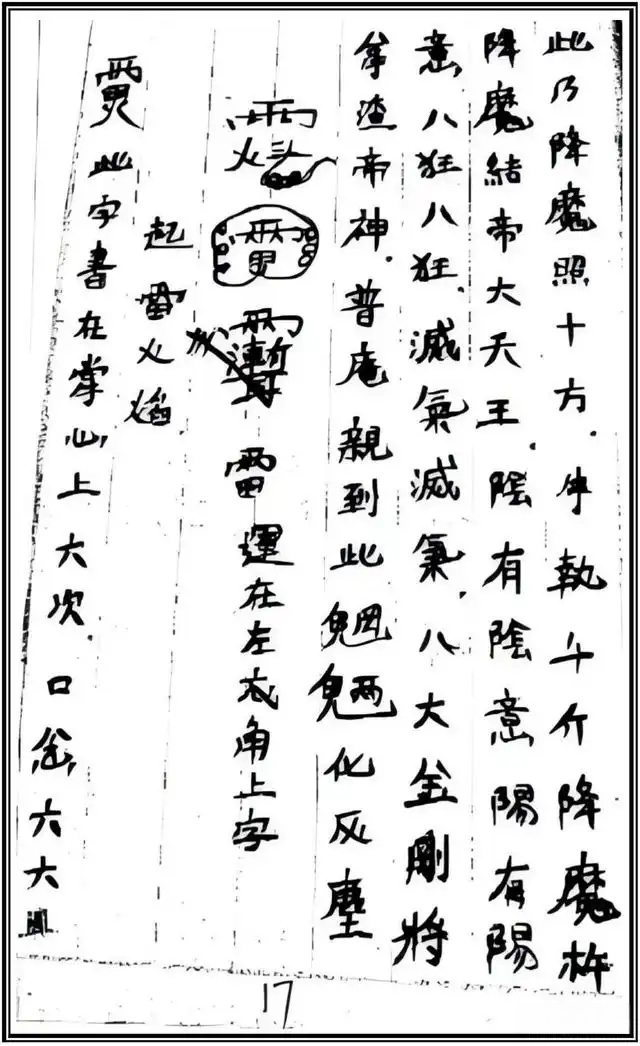 此乃降魔照十方.手執千斤降魔杵
降魔結帝大天王.陰有陰意陽有陽
意.八狂八狂.滅氣滅氣.八大金剛將
渣帝神.普庵親到此魍魎化灰塵
雷運在左衣角上字
起雷火焰
此字書在掌心上六次.口念六六
17